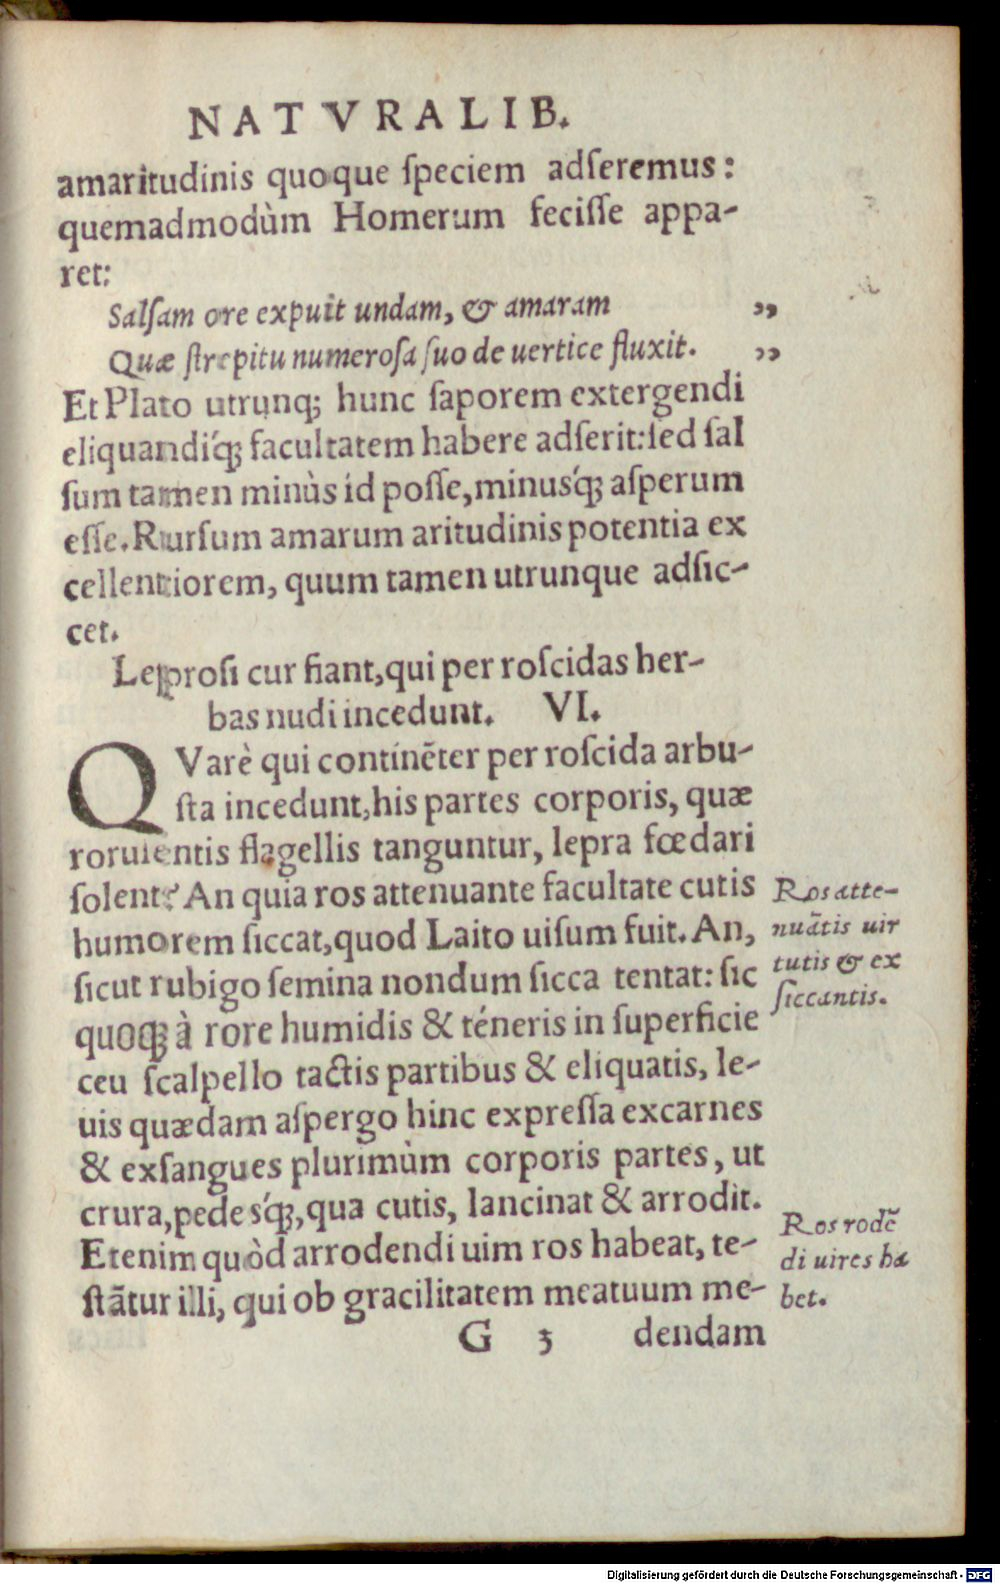 NATVRALIB.
amaritudinis quoque ſpeciem adſeremus:
quemadmodùm Homerum feciſſe appa-
ret:
Salſam ore expuit undam, & amaram ”
Quæ ſtrepitu numeroſa ſuo de uertice fluxit. ”
Et Plato utrunq; hunc ſaporem extergendi
eliquandiq́; facultatem habere adſerit: ſed ſal
ſum tamen minùs id poſſe, minusq́; aſperum
eſſe. Rurſum amarum aritudinis potentia ex
cellentiorem, quum tamen utrunque adſic-
cet.
Leproſi cur fiant, qui per roſcidas her-
bas nudi incedunt. VI.
QVarè qui contínẽter per roſcida arbu-
ſta incedunt, his partes corporis, quæ
roruientis flagellis tanguntur, lepra fœdari
ſolent? An quia ros attenuante facultate cutis
humorem ſiccat, quod Laito uiſum fuit. An,
ſicut rubigo ſemina nondum ſicca tentat: ſic
quoq; à rore humidis & téneris in ſuperficie
ceu ſcalpello tactis partibus & eliquatis, le-
uis quædam aſpergo hinc expreſſa excarnes
& exſangues plurimùm corporis partes, ut
crura, pedesq́;, qua cutis, lancinat & arrodit.
Etenim quòd arrodendi uim ros habeat, te-
ſtãtur illi, qui ob gracilitatem meatuum me-
G 3 dendam
Ros atte-
nuãtis uir
tutis & ex
ſiccantis.
Ros rodẽ
di uires ha
bet.
Digitalisierung gefördert durch die Deutsche Forschungsgemeinschaft - DFG